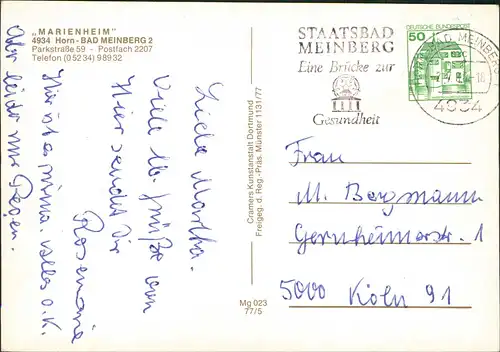 „MARIENHEIM"
4934 Horn-BAD MEINBERG 2
Parkstraße 59 - Postfach 2207
Telefon (05234) 98932
Liebe Martha.
Viele lb. Grüße von
Hier sendet Dir
Rosemarie
Hier ist es prima. Alles o.K.
Aber leider nur Regen.
Cramers Kunstanstalt Dortmund
Freigeg. d. Reg.-Präs. Münster 1131/77
Mg 023
77/5
STAATSBAD
MEINBERG
Eine Brücke zur
Gesundheit
DEUTSCHE BUNDESPOST
50
BAD MEINBERG
4934
Frau
M. Bergmann
Gernsheimerstr. 1
5000 Köln 91